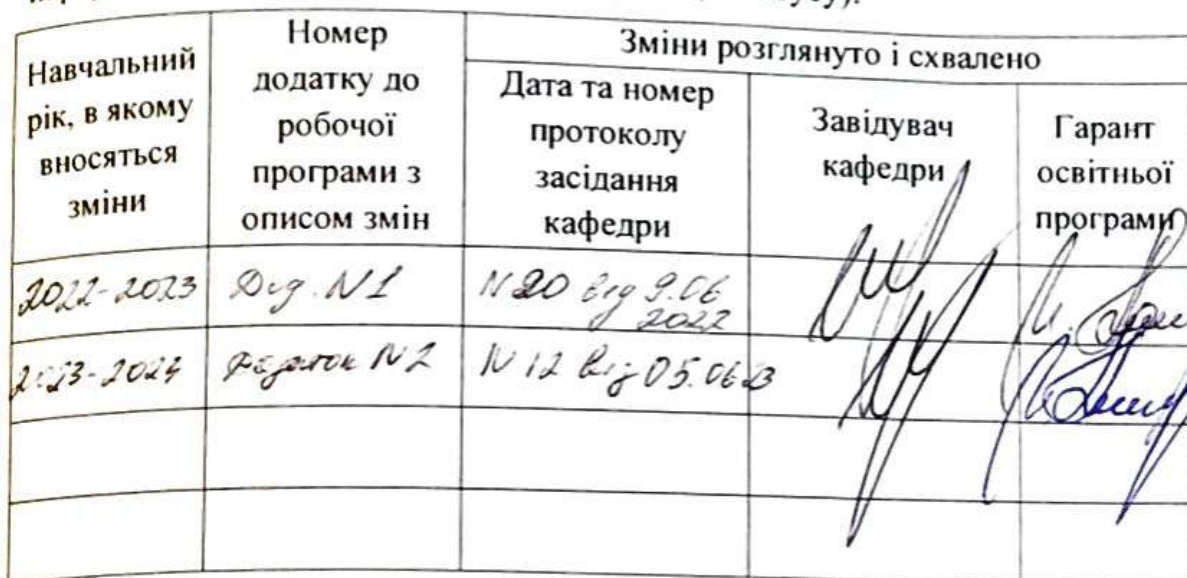 Навчальний
рік, в якому
вносяться
зміни
Номер
додатку до
робочої
програми з
описом змін
Зміни розглянуто і схвалено
Дата та номер
протоколу
засідання
кафедри
Завідувач
кафедри
Гарант
освітньої
програми
2022-2023
Дод. N1
N20 від 9.06
2022
2023-2024
Додаток N2
N 12 від 05.06.23